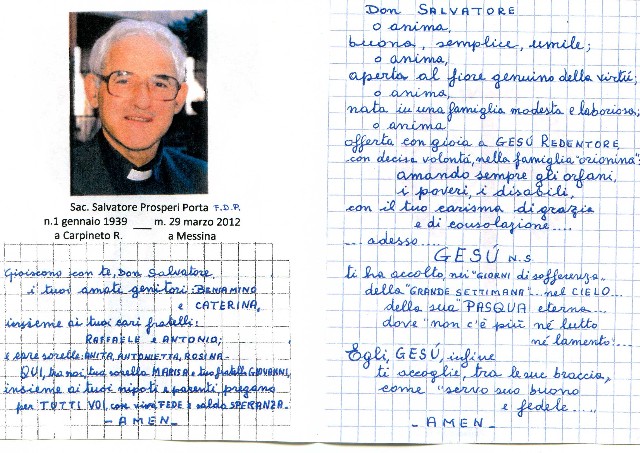 Sac. Salvatore Prosperi Porta F.D.P.
n.1 gennaio 1939 ___ m. 29 marzo 2012
a Carpineto R. a Messina
Gioiscono con te, Don Salvatore,
i tuoi amati genitori: BENIAMINO
e CATERINA,
insieme ai tuoi cari fratelli:
RAFFAELE e ANTONIO;
e care sorelle: ANITA, ANTONIETTA, ROSINA-
QUI, tra noi tua sorella MARISA e tuo fratello GIOVANNI,
insieme ai tuoi nipoti e parenti pregano
per TUTTI VOI, con viva FEDE e salda SPERANZA-
- AMEN -
Don SALVATORE
o anima,
buona, semplice, umile;
o anima,
aperta al fiore genuino della virtú;
o anima,
nata in una famiglia modesta e laboriosa;
o anima
offerta con gioia a GESÚ REDENTORE
con decisa volontá, nella famiglia "orionina"
amando sempre gli orfani,
i poveri, i disabili,
con il tuo carisma di grazia
e di consolazione....
... adesso....
GESÚ N.S.
ti ha accolto, nei "GIORNI di sofferenza..
della "GRANDE SETTIMANA"... nel CIELO...
della sua "PASQUA eterna...
dove "non c'é piú né lutto
né lamento"...
Egli, GESÚ, infine
ti accoglie, tra le sue braccia,
come "servo suo buono
e fedele....
- AMEN -